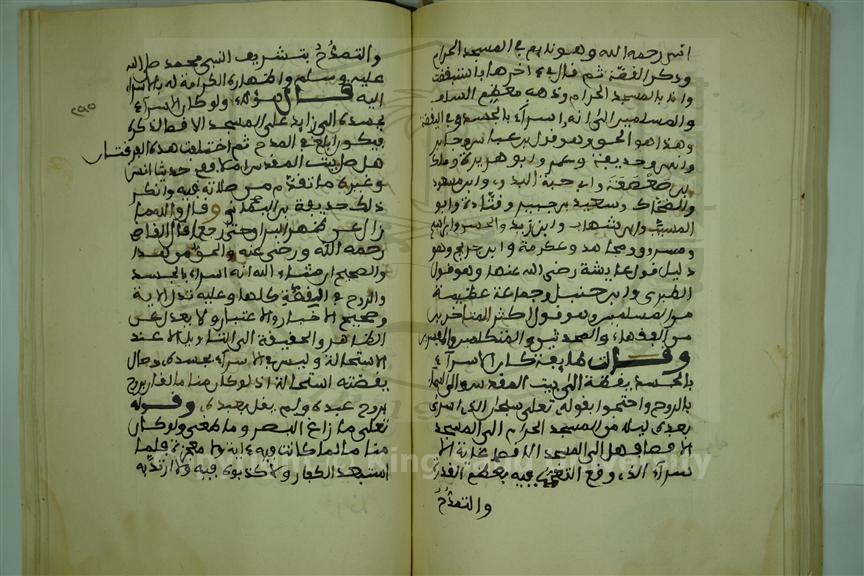 انس رحمه الله وهو نايم في المسجد الحرام
وذكر القصة ثم قال في اخرها فاستيقظت
وانا بالمسجد الحرام وذهب معظم السلف
والمسلمين الى انه اسراء بالجسد وفي اليقظة
وهذا هو الحق وهو قول ابن عباس وجابر
وانس وحذيفة وعمر وابو هريرة ومالك
بن صعصعة وابي حبة البدري وابن مسعود
والضحاك وسعيد بن جبير وقتادة وابو
المسيب وابن شهاب وابن زيد والحسن وابراهيم
ومسروق ومجاهد وعكرمة وابن جريج وهو
دليل قول عايشة رضي الله عنها وهو قول
الطبري وابن حنبل وجماعة عظيمة
من المسلمين وهو قول اكثر المتاخرين
من الفقهاء والمحدثين والمتكلمين والمفسرين
وقالت طايفة كان الاسراء
بالجسد يقظة الى بيت المقدس والى السماء
بالروح واحتجوا بقوله تعلى سبحان الذي اسرى
بعبده ليلا من المسجد الحرام الى المسجد
الاقصا فجعل الى المسجد الاقصا غاية الا
سراء الذي وقع التعجب فيه بعظيم القدرة
والتمدُّحُ
والتمدُّحُ بتشريف النبي محمد صلى الله
عليه وسلم واظهار الكرامة له بالاسراء
اليه قال هؤلاء ولو كان الاسراء
بجسده الى زايد على المسجد الاقصا لذكره
فيكون ابلغ في المدح ثم اختلفت هذه الفرقتان
هل صلى ببيت المقدس ام لا ففي حديث انس
وغيره ما تقدم من صلاته فيه وانكر
ذلك حذيفة بن اليمان وقال والله ما
زال عن ظهر البراق حتى رجعا قال القاضي
رحمه الله ورضي عنه والحق من هذا
والصحيح ان شاء الله انه اسراء بالجسد
والروح في اليقظة كلها وعليه تدل الاية
وصحيح الاخبار والاعتبار ولا يعدل عن
الظاهر والحقيقة الى التاويل الا عند
الاستحالة وليس في الاسراء بجسده وحال
يقظته استحالة اذ لو كان مناما لقال بروح
عبده ولم يقل بعبده وقوله
تعلى ما زاغ البصر وما طغى ولو كان
مناما لما كانت فيه اية ولا معجزة ولما
استبعد الكفار ولا كذبوه فيه ولا ارتد به